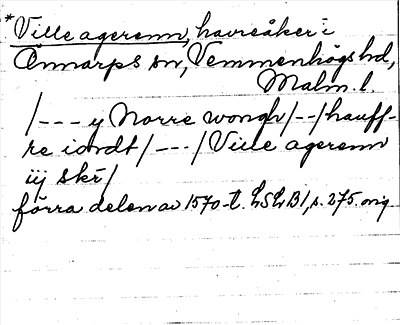 *Ville agerenn, havreåker i
Önnarps sn, Vemmenhögs hd,
Malm. l.
/--- y Norre wongh/--/hauff-
re iordt/---/Ville agerenn
iij skr/
förra delen av 1570-t. LSLB1, s. 275. orig